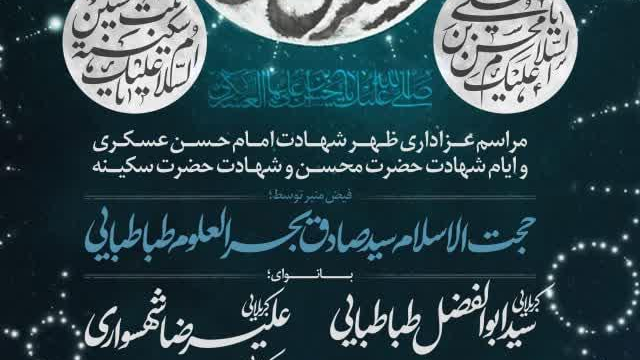 السلام علیک یا
محسن بن علی
السلام علیک یا
سکینة بنت الحسین
صلی الله علیک یا حسن بن علی ایها العسکری
مراسم عزاداری ظهر شهادت امام حسن عسکری
و ایام شهادت حضرت محسن و شهادت حضرت سکینه
فیض منبر توسط؛
حجت الاسلام سید صادق بحرالعلوم طباطبایی
بانوای؛
کربلایی سید ابوالفضل طباطبایی
کربلایی علیرضا شهسواری